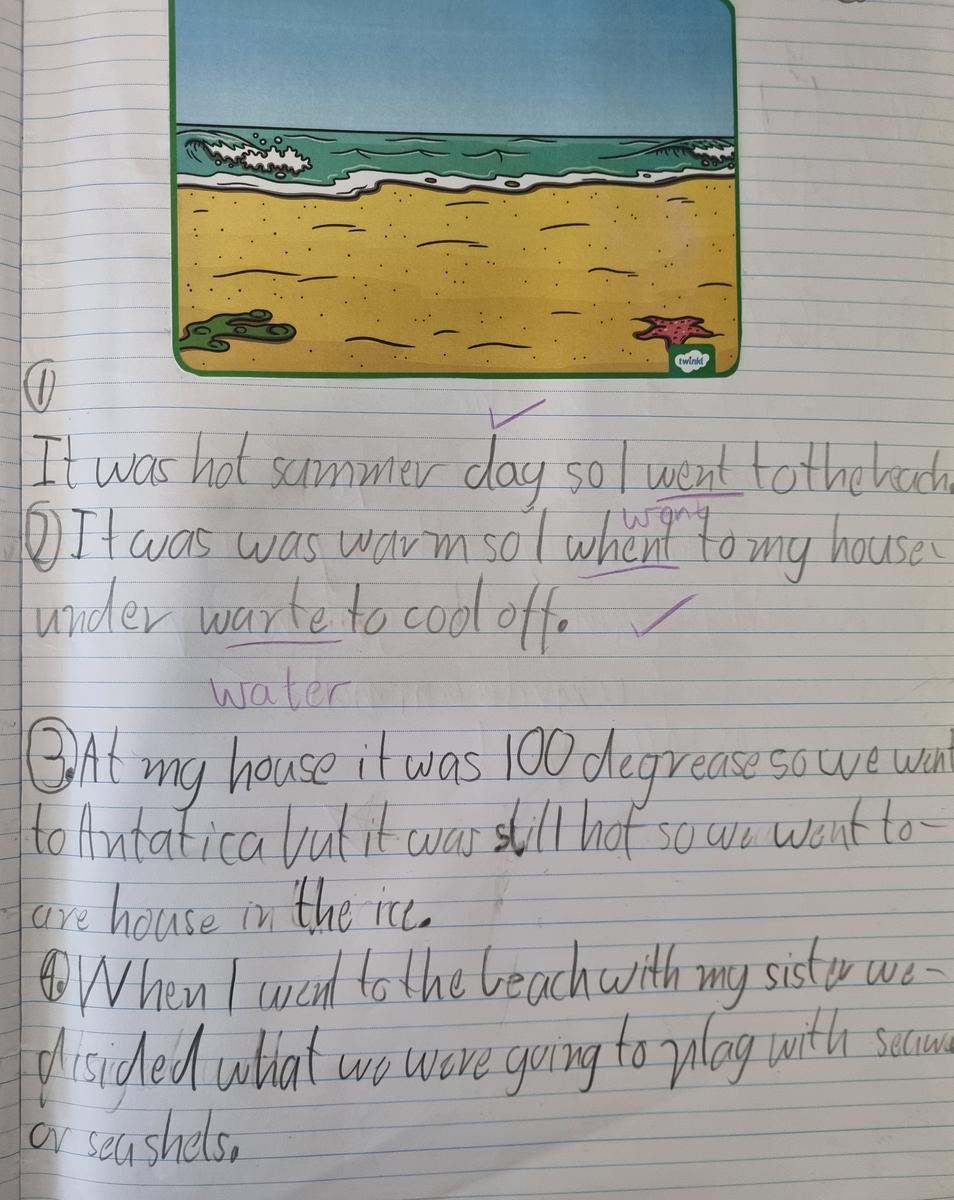 twinkl
①
It was hot summer day so I went to the beach.
went
② It was was warm so I whent to my house-
under warte to cool off.
water
③. At my house it was 100 degrease so we went
to Antatica but it was still hot so we went to-
are house in the ice.
④. When I went to the beach with my sister we-
disided what we were going to play with
or sea shels.